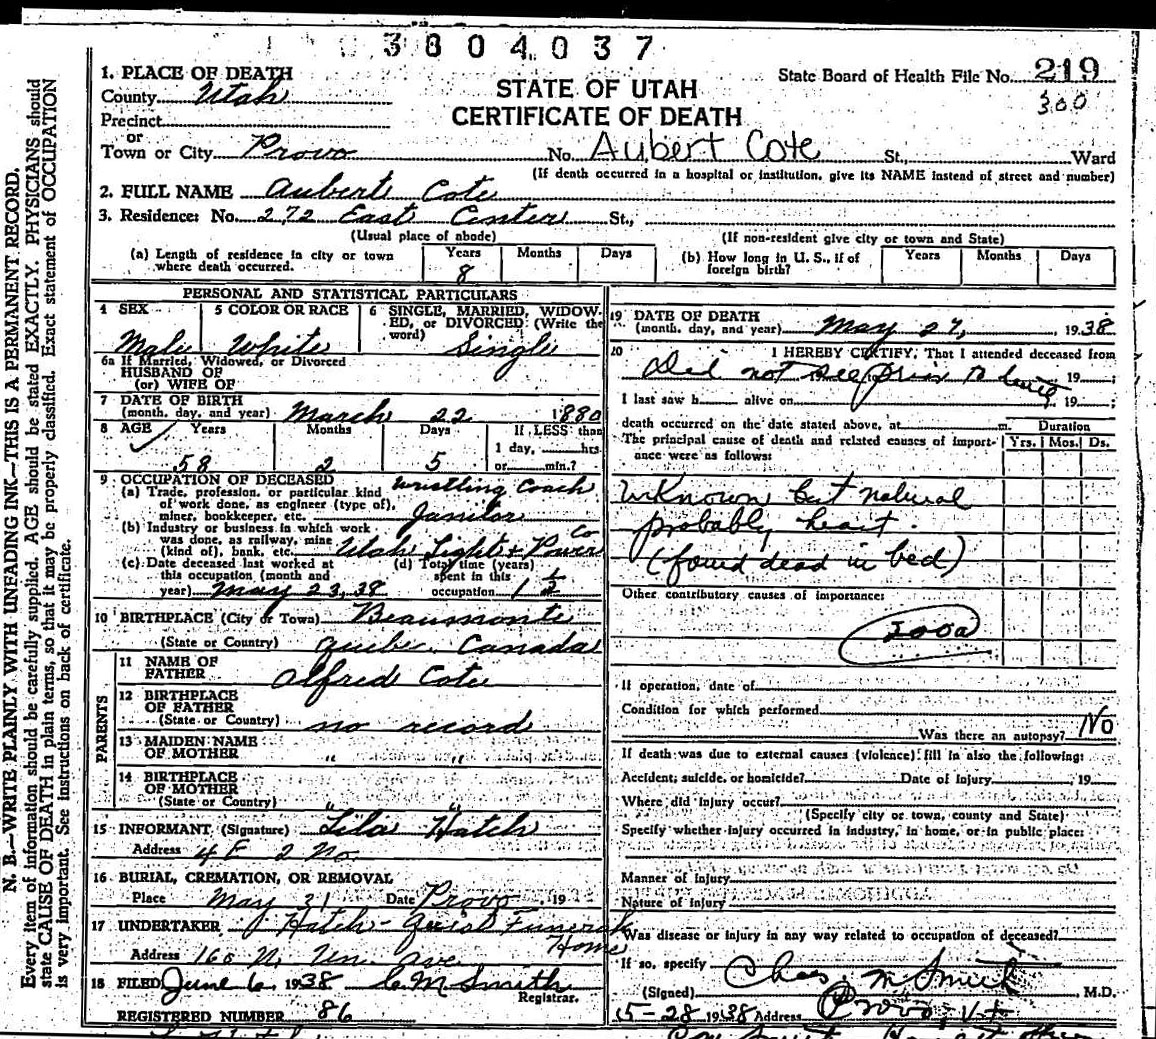 3804037
1. PLACE OF DEATH
STATE OF UTAH
State Board of Health File No. 219
County Utah
CERTIFICATE OF DEATH
300
Precinct
or
Town or City Provo No. Aubert Cote St., Ward
(If death occurred in a hospital or institution, give its NAME instead of street and number)
2. FULL NAME Aubert Cote
3. Residence: No. 272 East Center St.,
(Usual place of abode) (If non-resident give city or town and State)
(a) Length of residence in city or town where death occurred. Years 8 Months Days
(b) How long in U. S., if of foreign birth? Years Months Days
PERSONAL AND STATISTICAL PARTICULARS
4 SEX Male
5 COLOR OR RACE White
6 SINGLE, MARRIED, WIDOWED, or DIVORCED: (Write the word) Single
6a If Married, Widowed, or Divorced
HUSBAND OF
(or) WIFE OF
7 DATE OF BIRTH
(month, day, and year) March 22 1880
8 AGE Years 58 Months 2 Days 5 If LESS than 1 day, hrs. or min.?
9 OCCUPATION OF DECEASED Wrestling Coach
(a) Trade, profession, or particular kind
of work done, as engineer (type of),
miner, bookkeeper, etc. Janitor
(b) Industry or business in which work
was done, as railway, mine
(kind of), bank, etc. Utah Light & Power Co
(c) Date deceased last worked at
this occupation (month and
year) May 23, 38
(d) Total time (years)
spent in this
occupation 1 1/2
10 BIRTHPLACE (City or Town) Beaumonte
(State or Country) Quebec Canada
PARENTS
11 NAME OF FATHER Alfred Cote
12 BIRTHPLACE OF FATHER
(State or Country) no record
13 MAIDEN NAME OF MOTHER " "
14 BIRTHPLACE OF MOTHER
(State or Country) " "
15 INFORMANT (Signature) Lila Hatch
Address 4 E 2 No
16 BURIAL, CREMATION, OR REMOVAL
Place May 31 Date Provo, 19
17 UNDERTAKER Hatch - Funeral Home
Address 160 N. Un. ave
18 FILED June 6, 1938 C M Smith
Registrar.
REGISTERED NUMBER 86
19 DATE OF DEATH
(month, day, and year) May 27, 1938
20 I HEREBY CERTIFY, That I attended deceased from
Did not see prior to 19 ;
I last saw h alive on 19 ;
death occurred on the date stated above, at m. Duration
The principal cause of death and related causes of importance were as follows: Yrs. Mos. Ds.
unknown but natural
probably heart.
(found dead in bed)
Other contributory causes of importance:
200a
If operation, date of
Condition for which performed
Was there an autopsy? No
If death was due to external causes (violence) fill in also the following:
Accident, suicide, or homicide? Date of Injury , 19
Where did injury occur?
(Specify city or town, county and State)
Specify whether injury occurred in industry, in home, or in public place:
Manner of injury
Nature of injury
Was disease or injury in any way related to occupation of deceased?
If so, specify
(Signed) Chas. M Smith M.D.
5-28 1938 Address Provo, Ut
N. B.—WRITE PLAINLY WITH UNFADING INK—THIS IS A PERMANENT RECORD.
Every item of information should be carefully supplied. AGE should be stated EXACTLY. PHYSICIANS should
state CAUSE OF DEATH in plain terms, so that it may be properly classified. Exact statement of OCCUPATION
is very important. See instructions on back of certificate.